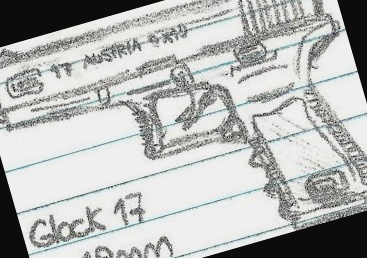 17 AUSTRIA 9x19
Glock 17